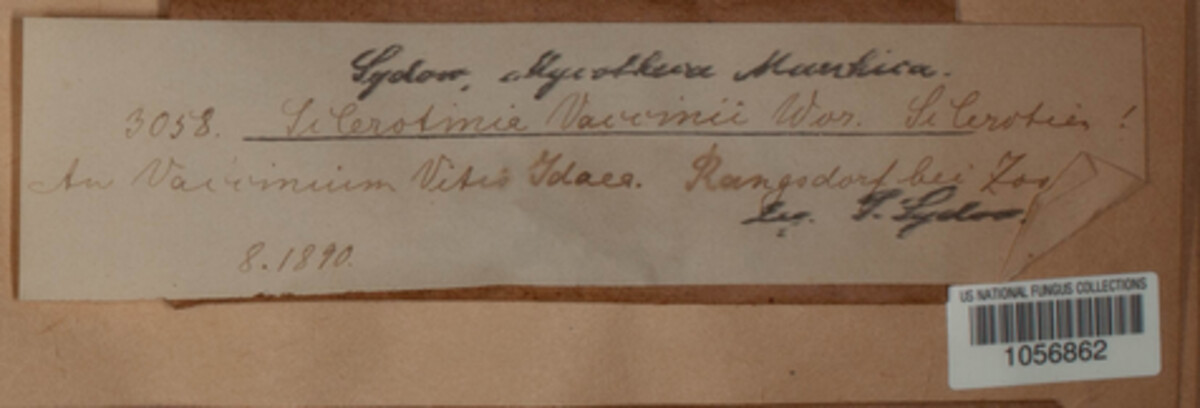 Sydow, Mycotheca Marchica.
3058. Sclerotinia Vaccinii Wor. Sclerotien!
An Vaccinium Vitis Idaea. Rangsdorf bei
P. Sydow.
8.1890.
US NATIONAL FUNGUS COLLECTIONS
1056862